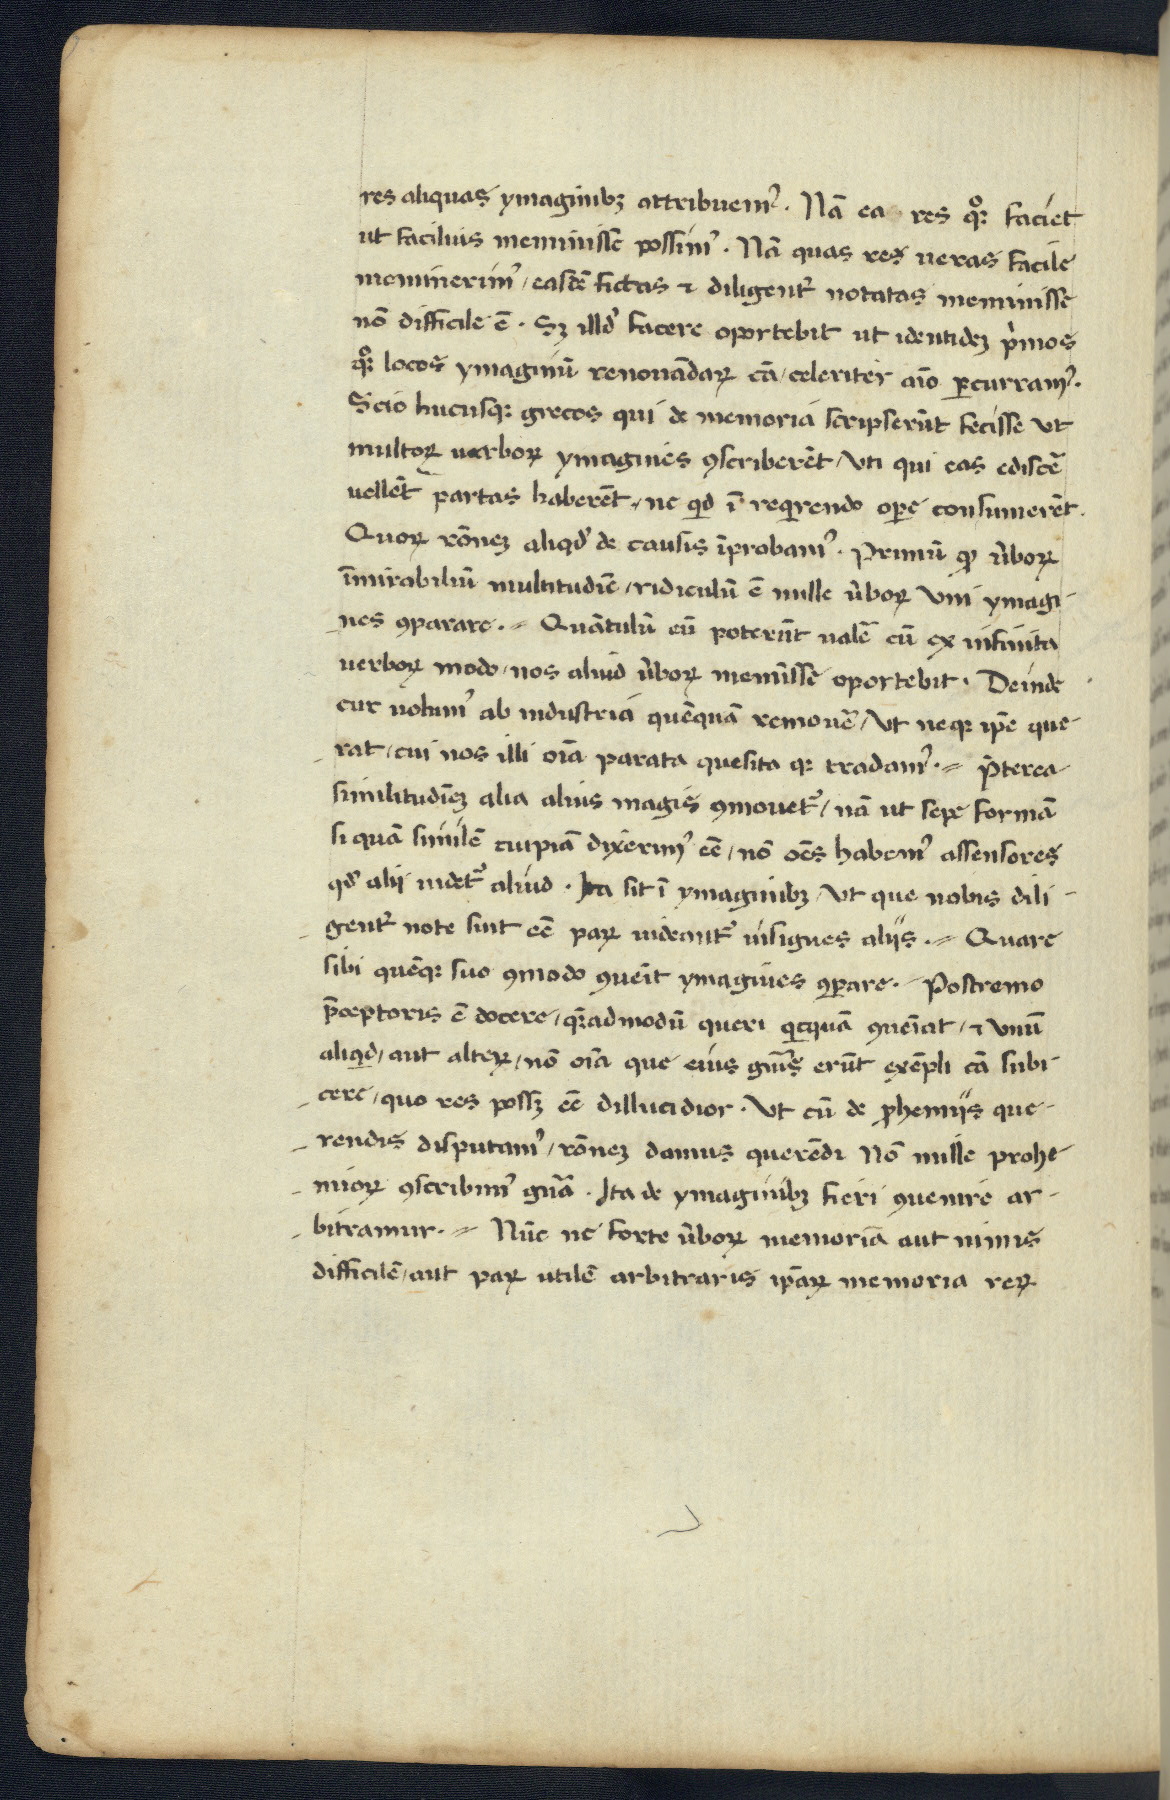 res aliquas ymaginibꝫ attribuemꝰ. Nā ea res qͦꝫ faciet
ut facilius meminisse possimꝰ. Nā quas res ueras facile
meminerimꝰ / easdē fictas ⁊ diligentꝰ notatas meminisse
nō difficile ē. Sꝫ illdꝰ facere oportebit ut identideꝫ p̄mos
qͦꝫ locos ymaginū renouādaꝝ cā / celeriter aīo ꝑcurramꝰ.
Scio hucusqꝫ grecos qui de memoria scripserūt fecisse ut
multoꝝ uerboꝝ ymagines ꝯscriberēt / uti qui eas ediscē
uellēt partas haberēt / ne qid ī reqirendo oꝑe consumerēt.
Quoꝝ rōneꝫ aliqdꝰ de causis īprobamꝰ. Primū ꝙ ūboꝝ
īmirabiliū multitudīe / ridiculū ē mille ūboꝝ Vni ymagi-
nes ꝯparare. = Quātulū eū poterūt ualē cū ex infinita
uerboꝝ modo / nos aliud ūboꝝ memīsse oportebit. Deinde
cur uolumꝰ ab industria quēquā remouē / ut neqꝫ ipē que-
rat / cui nos illi oīa parata quesita qꝫ tradamꝰ. = P̄terea
similitudīeꝫ alia alius magis ꝯmouetꝰ / nā ut sepe formā
si quā similē cuipiā dixerimꝰ eē / nō oēs habemꝰ assensores
qdꝰ alij uidetꝰ aliud. Ita sit ī ymaginibꝫ / ut que nobis dili-
gentꝰ note sint eē paꝝ uideantꝰ insignes alijs. = Quare
sibi quēqꝫ suo ꝯmodo ꝯueīt ymagines ꝯꝑare. Postremo
p̄ceptoris ē docere / qꝫadmodū queri qicquā ꝯueīat / ⁊ Vnū
aliqid / aut alteꝝ / nō oīa que eius gn̄is erūt exēpli cā subi-
cere / quo res possꝫ eē dillucidior. Vt cū de ꝓhemijs que-
rendis disputamꝰ / rōneꝫ damus querēdi Nō mille prohe-
mioꝝ ꝯscribimꝰ gn̄a. Ita de ymaginibꝫ fieri ꝯuenire ar-
bitramur. = Nūc ne forte ūboꝝ memoriā aut nimis
difficilē / aut paꝝ utilē arbitraris ipāꝝ memoria reꝝ